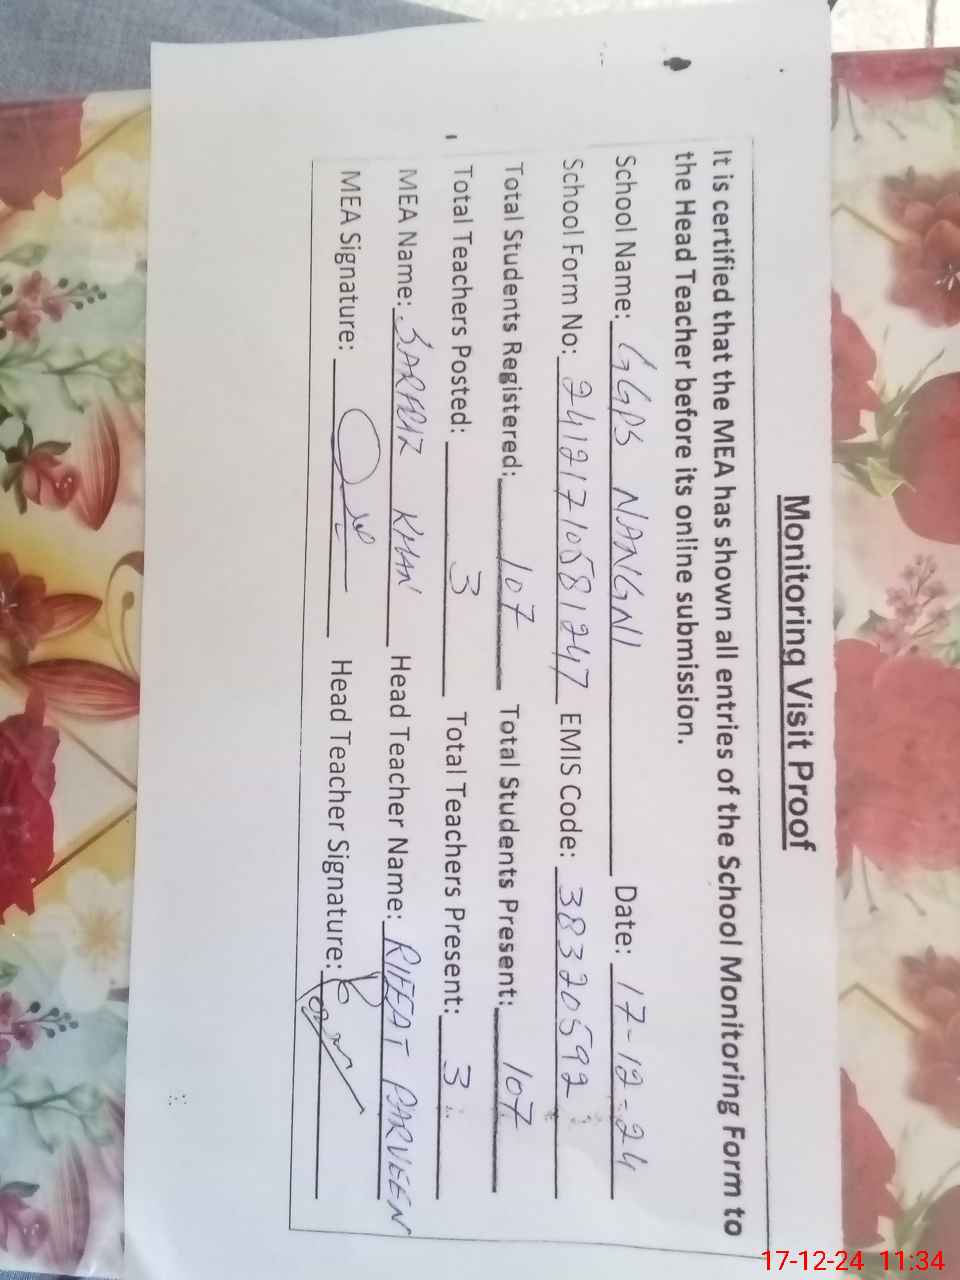 Monitoring Visit Proof
It is certified that the MEA has shown all entries of the School Monitoring Form to
the Head Teacher before its online submission.
School Name: GGPS NANGNI Date: 17-12-24
School Form No: 24121710581247 EMIS Code: 38320592
Total Students Registered: 107 Total Students Present: 107
Total Teachers Posted: 3 Total Teachers Present: 3
MEA Name: SARFRAZ KHAN Head Teacher Name: RIFFAT PARVEEN
MEA Signature: Head Teacher Signature:
17-12-24 11:34